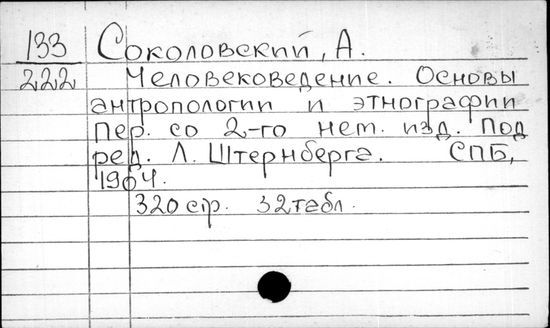 133 Соколовский, А.
222 Человековедение. Основы
антропологии и этнографии
Пер. со 2-го нем. изд. Под
ред. Л. Штернберга. СПБ,
1904.
320 стр. 32 табл.